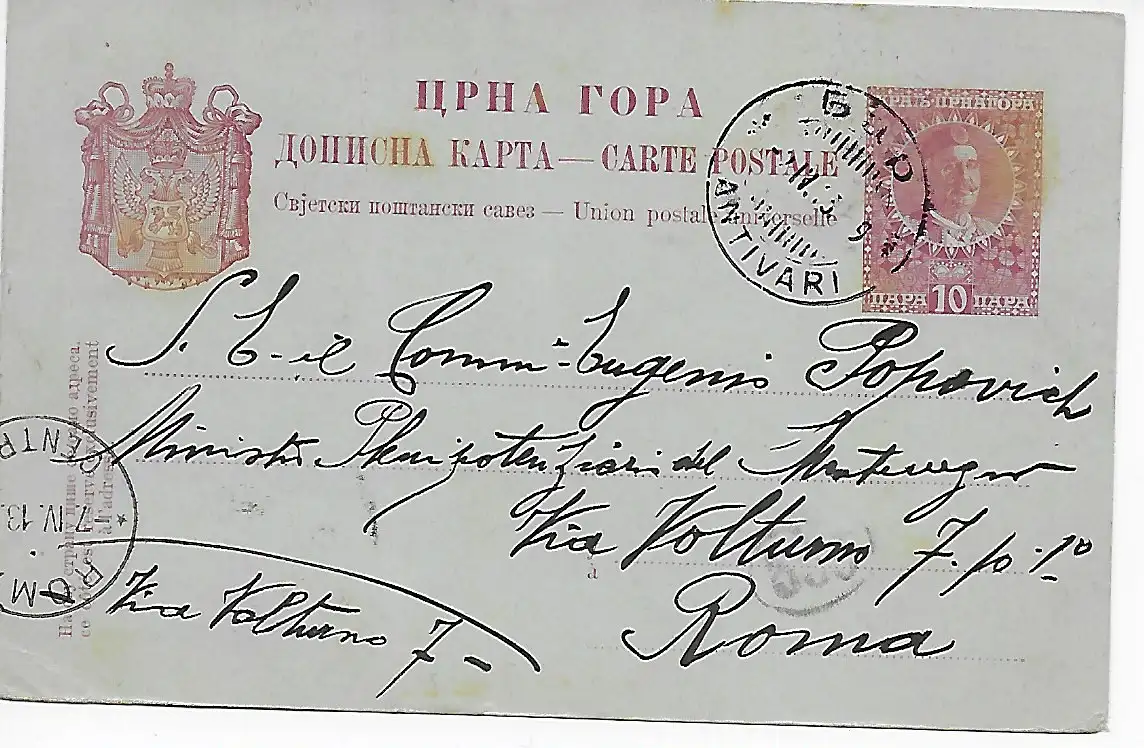 ЦРНА ГОРА
ДОПИСНА КАРТА — CARTE POSTALE
Свјетски поштански савез — Union postale universelle
БАР
ANTIVARI
ЦРНАГОРА
ПАРА 10 ПАРА
S. E. il Comm. Eugenio Popovich
Ministro Plenipotenziario del Montenegro
Via Volturno 7. p. 1º
à
Roma
Via Volturno 7 -
адреса.
7.IV.13.
ROMA
CENTR